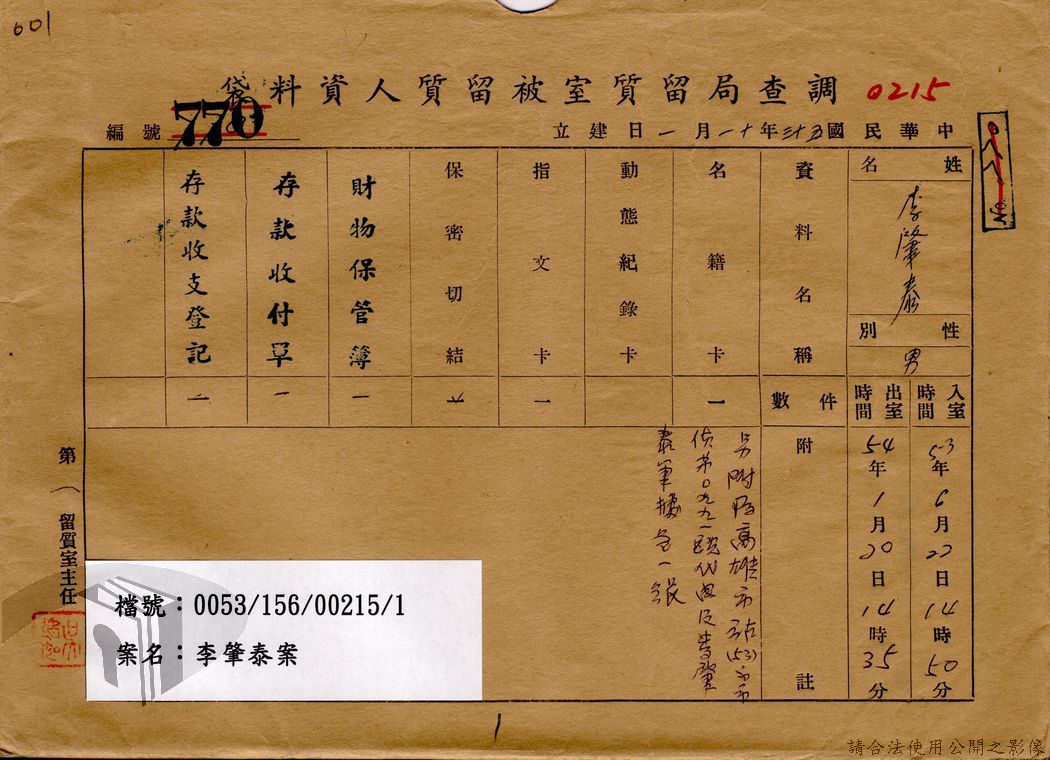 601
調查局留質室被留質人資料袋
0215
編號
770
中華民國五十三年十一月一日建立
姓名
李肇泰
性別
男
入室時間
53年6月22日14時50分
出室時間
54年1月20日14時35分
資料名稱
件數
附註
名籍卡
一
動態紀錄卡
指文卡
一
保密切結
財物保管簿
一
存款收付單
一
存款收支登記
一
另附
高雄市
(53)
一張
第一留質室主任
檔號：0053/156/00215/1
案名：李肇泰案
1
請合法使用公開之影像